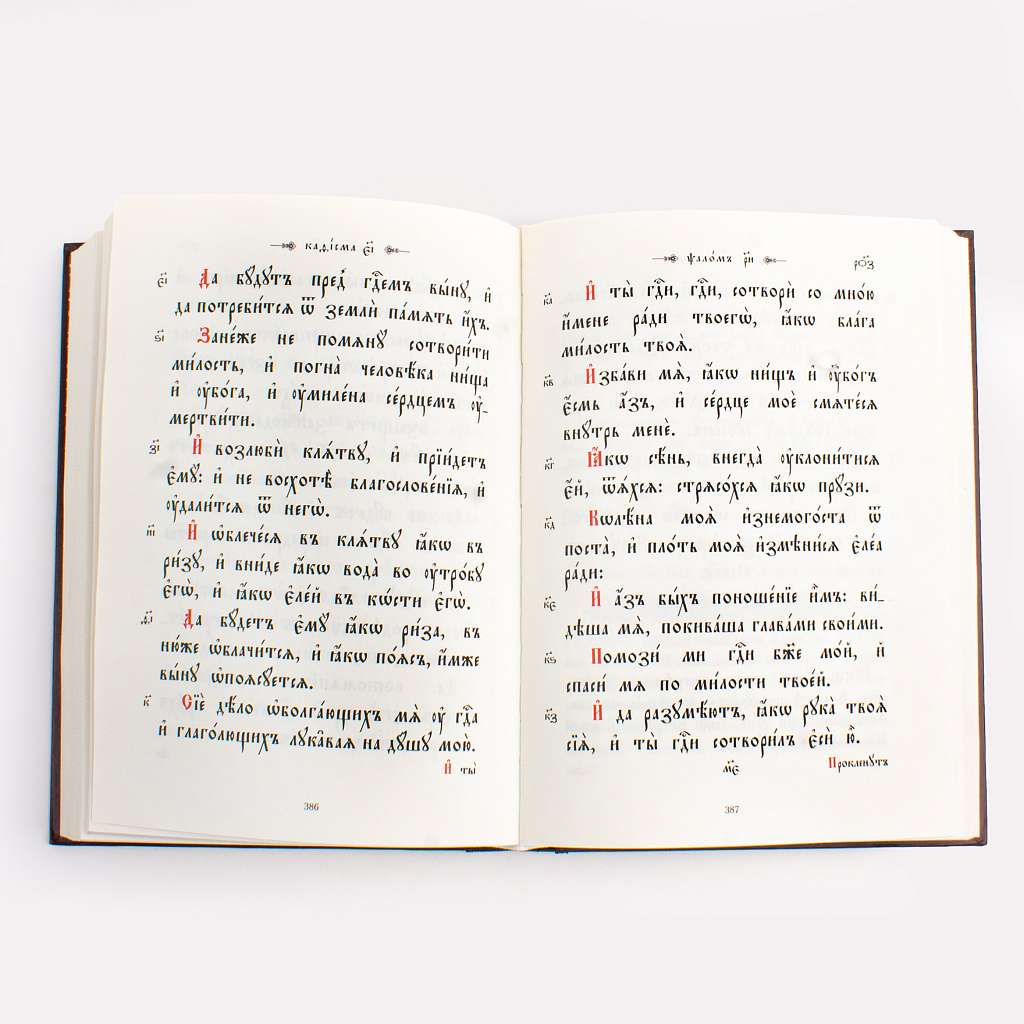 каѳі́сма є҃і
є҃і Да бꙋ́дꙋтъ пред̾ гдⷭ҇емъ вы́нꙋ, и҆
да потреби́тсѧ ѿ землѝ па́мѧть и҆́хъ.
ѕ҃і Зане́же не помѧнꙋ̀ сотвори́ти
ми́лость, и҆ погна̀ человѣ́ка ни́ща
и҆ ᲂу҆бо́га, и҆ ᲂу҆миле́на се́рдцемъ ᲂу҆-
мертви́ти.
з҃і И҆ возлюбѝ клѧ́твꙋ, и҆ прїи́детъ
є҆мꙋ̀: и҆ не восхотѣ̀ благослове́нїѧ, и҆
ᲂу҆дали́тсѧ ѿ негѡ̀.
и҃і И҆ ѡ҆блече́сѧ въ клѧ́твꙋ ꙗ҆́кѡ въ
ри́зꙋ, и҆ вни́де ꙗ҆́кѡ вода̀ во ᲂу҆тро́бꙋ
є҆гѡ̀, и҆ ꙗ҆́кѡ є҆ле́й въ кѡ́сти є҆гѡ̀.
ѳ҃і Да бꙋ́детъ є҆мꙋ̀ ꙗ҆́кѡ ри́за, въ
ню́же ѡ҆блачи́тсѧ, и҆ ꙗ҆́кѡ по́ѧсъ, и҆́мже
вы́нꙋ ѡ҆поѧсꙋ́етсѧ.
к҃ Сїѐ дѣ́ло ѡ҆болга́ющихъ мѧ̀ ᲂу҆ гдⷭ҇а
и҆ глаго́лющихъ лꙋка̑ваѧ на дꙋ́шꙋ мою̀.
И҆ ты̀
386
ѱало́мъ р҃и
ро҃з
к҃а И҆ ты̀ гдⷭ҇и, гдⷭ҇и, сотворѝ со мно́ю
и҆́мене ра́ди твоегѡ̀, ꙗ҆́кѡ бла́га
ми́лость твоѧ̀.
к҃в И҆зба́ви мѧ̀, ꙗ҆́кѡ ни́щъ и҆ ᲂу҆бо́гъ
є҆́смь а҆́зъ, и҆ се́рдце моѐ смѧте́сѧ
внꙋ́трь менє̀.
к҃г Ꙗ҆́кѡ сѣ́нь, внегда̀ ᲂу҆клони́тисѧ
є҆́й, ѿѧ́хсѧ: стрѧсо́хсѧ ꙗ҆́кѡ прꙋ́зи.
к҃д Кѡлѣ́на моѧ̑ и҆знемого́ста ѿ
поста̀, и҆ пло́ть моѧ̀ и҆змѣни́сѧ є҆ле́а
ра́ди:
к҃є И҆ а҆́зъ бы́хъ поноше́нїе и҆̀мъ: ви́-
дѣша мѧ̀, покива́ша глава́ми свои́ми.
к҃ѕ Помози́ ми гдⷭ҇и бж҃е мо́й, и҆
спаси́ мѧ по ми́лости твое́й.
к҃з И҆ да разꙋмѣ́ютъ, ꙗ҆́кѡ рꙋка̀ твоѧ̀
сїѧ̀, и҆ ты̀ гдⷭ҇и сотвори́лъ є҆сѝ ю҆̀.
м҃є
Прокленꙋ́тъ
387